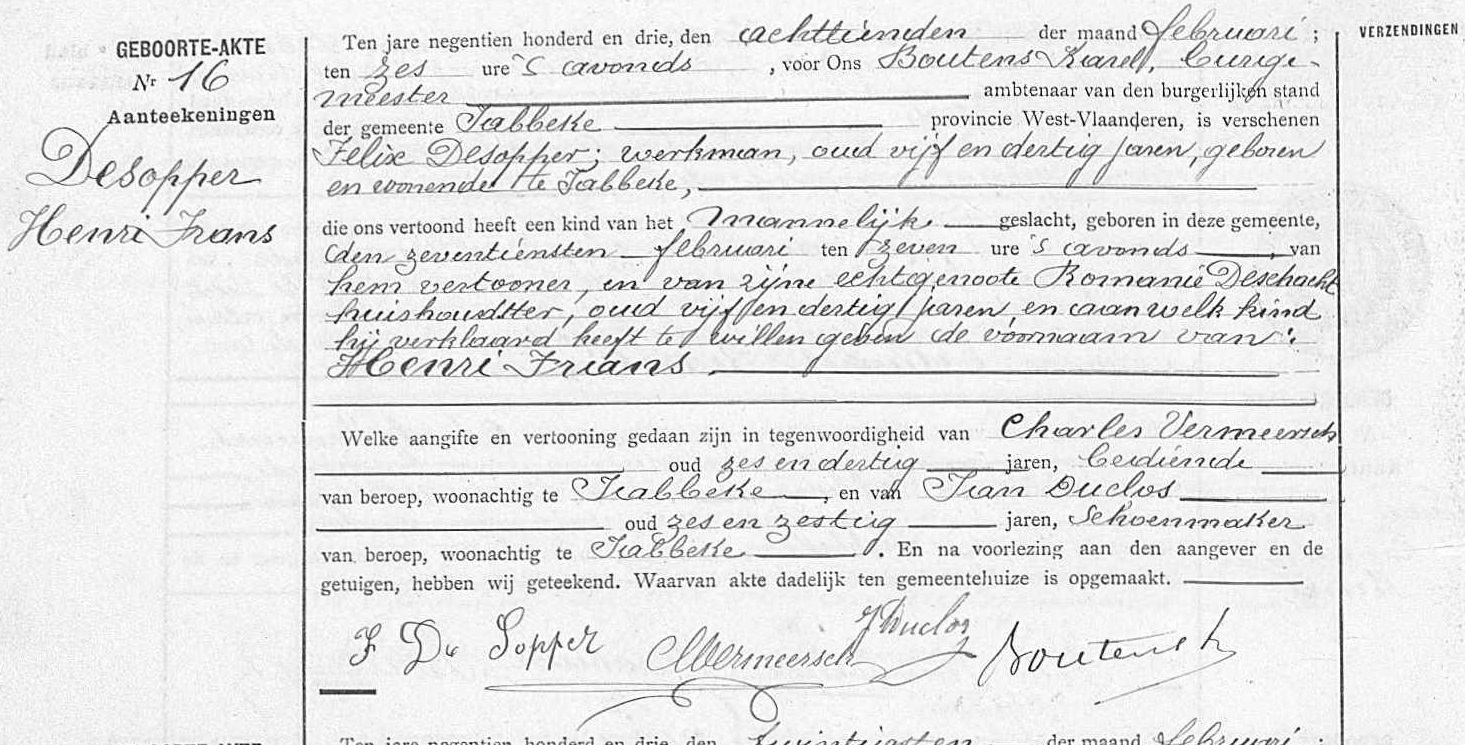 GEBOORTE-AKTE
Nr 16
Aanteekeningen
Desopper
Henri Frans
Ten jare negentien honderd en drie, den achttienden der maand februari ;
ten zes ure 's avonds , voor Ons Boutens Karel, Burge-
meester ambtenaar van den burgerlijken stand
der gemeente Jabbeke provincie West-Vlaanderen, is verschenen
Felix Desopper; werkman, oud vijf en dertig jaren, geboren
en wonende te Jabbeke,
die ons vertoond heeft een kind van het Mannelijk geslacht, geboren in deze gemeente,
den zeventiensten februari ten zeven ure 's avonds , van
hem vertooner, en van zijne echtgenoote Romanie Deschacht
huishoudster, oud vijf en dertig jaren, en aan welk kind
hij verklaard heeft te willen geven de voornaam van:
Henri Frans
Welke aangifte en vertooning gedaan zijn in tegenwoordigheid van Charles Vermeersch
oud zes en dertig jaren, bediende
van beroep, woonachtig te Jabbeke , en van Jean Duclos
oud zes en zestig jaren, Schoenmaker
van beroep, woonachtig te Jabbeke . En na voorlezing aan den aangever en de
getuigen, hebben wij geteekend. Waarvan akte dadelijk ten gemeentehuize is opgemaakt.
F De Sopper CVermeersch J Duclos Boutens K
Ten jare negentien honderd en drie, den twintigsten der maand februari ;
VERZENDINGEN